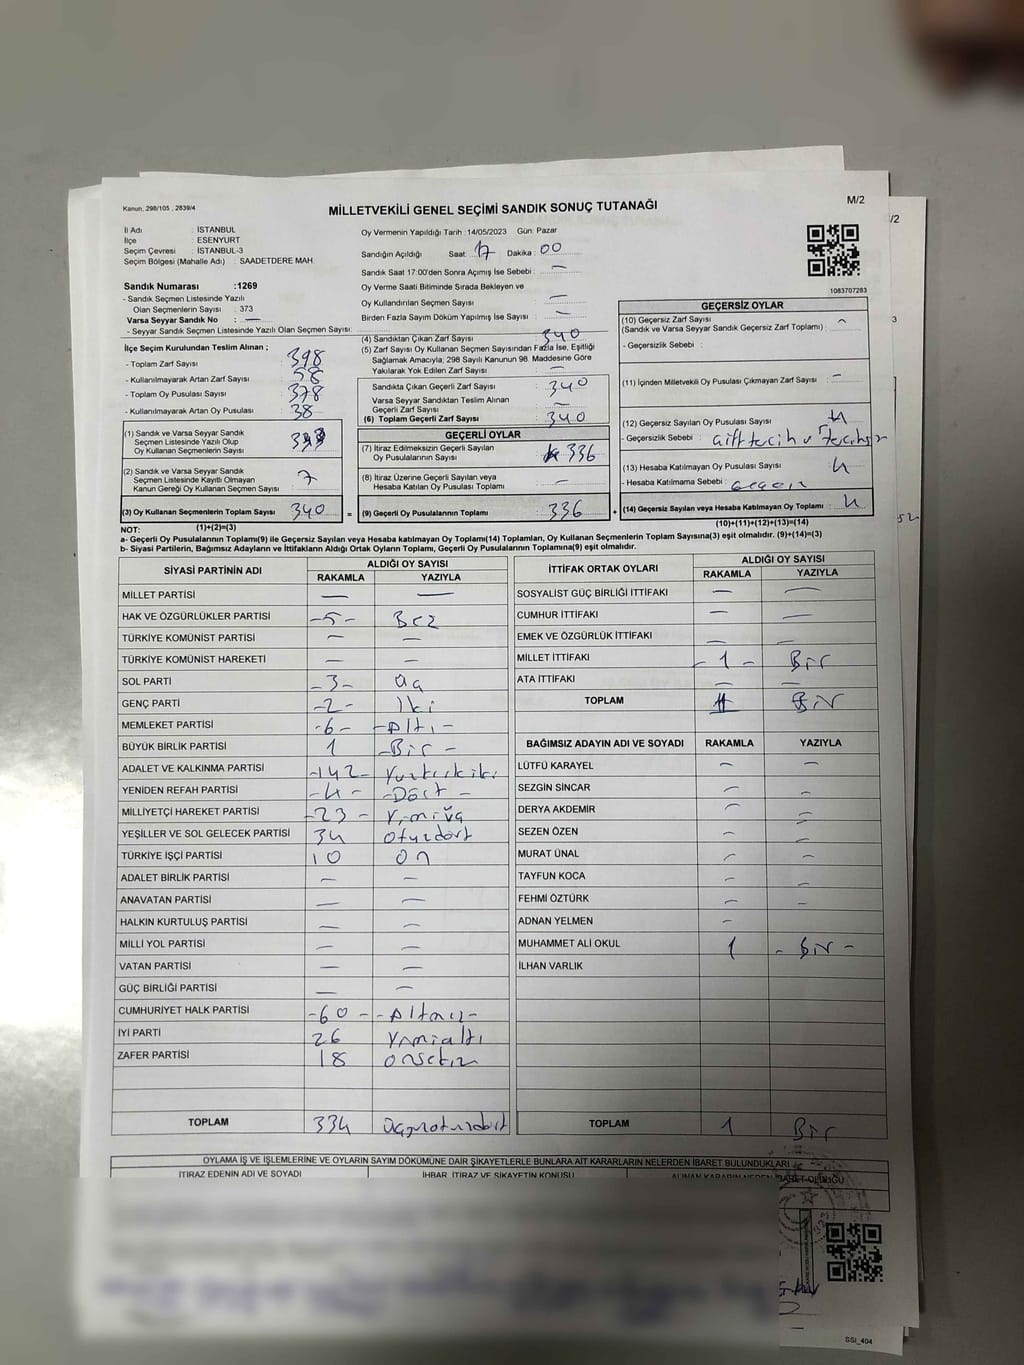 Kanun; 298/105 , 2839/4
MİLLETVEKİLİ GENEL SEÇİMİ SANDIK SONUÇ TUTANAĞI
M/2
/2
İl Adı : İSTANBUL
İlçe : ESENYURT
Seçim Çevresi : İSTANBUL-3
Seçim Bölgesi (Mahalle Adı) : SAADETDERE MAH.
Sandık Numarası :1269
- Sandık Seçmen Listesinde Yazılı
Olan Seçmenlerin Sayısı : 373
Varsa Seyyar Sandık No : —
- Seyyar Sandık Seçmen Listesinde Yazılı Olan Seçmen Sayısı:
Oy Vermenin Yapıldığı Tarih :14/05/2023 Gün: Pazar
Sandığın Açıldığı Saat: 17 Dakika: 00
Sandık Saat 17:00'den Sonra Açımış İse Sebebi : —
Oy Verme Saati Bitiminde Sırada Bekleyen ve
Oy Kullandırılan Seçmen Sayısı : —
Birden Fazla Sayım Döküm Yapılmış İse Sayısı : —
1083707283
İlçe Seçim Kurulundan Teslim Alınan ;
- Toplam Zarf Sayısı : 398
- Kullanılmayarak Artan Zarf Sayısı : 58
- Toplam Oy Pusulası Sayısı : 378
- Kullanılmayarak Artan Oy Pusulası : 38
(1) Sandık ve Varsa Seyyar Sandık
Seçmen Listesinde Yazılı Olup
Oy Kullanan Seçmenlerin Sayısı
(2) Sandık ve Varsa Seyyar Sandık
Seçmen Listesinde Kayıtlı Olmayan
Kanun Gereği Oy Kullanan Seçmen Sayısı : 7
(3) Oy Kullanan Seçmenlerin Toplam Sayısı 340
(1)+(2)=(3)
(4) Sandıktan Çıkan Zarf Sayısı : 340
(5) Zarf Sayısı Oy Kullanan Seçmen Sayısından Fazla İse, Eşitliği
Sağlamak Amacıyla, 298 Sayılı Kanunun 98. Maddesine Göre
Yakılarak Yok Edilen Zarf Sayısı : —
Sandıkta Çıkan Geçerli Zarf Sayısı : 340
Varsa Seyyar Sandıktan Teslim Alınan
Geçerli Zarf Sayısı : —
(6) Toplam Geçerli Zarf Sayısı : 340
GEÇERLİ OYLAR
(7) İtiraz Edilmeksizin Geçerli Sayılan
Oy Pusulalarının Sayısı : 336
(8) İtiraz Üzerine Geçerli Sayılan veya
Hesaba Katılan Oy Pusulası Toplamı : —
= (9) Geçerli Oy Pusulalarının Toplamı 336 +
GEÇERSİZ OYLAR
(10) Geçersiz Zarf Sayısı
(Sandık ve Varsa Seyyar Sandık Geçersiz Zarf Toplamı) : —
- Geçersizlik Sebebi :
(11) İçinden Milletvekili Oy Pusulası Çıkmayan Zarf Sayısı : —
(12) Geçersiz Sayılan Oy Pusulası Sayısı : 4
- Geçersizlik Sebebi :
(13) Hesaba Katılmayan Oy Pusulası Sayısı : 4
- Hesaba Katılmama Sebebi :
(14) Geçersiz Sayılan veya Hesaba Katılmayan Oy Toplamı : 4
(10)+(11)+(12)+(13)=(14)
NOT:
a- Geçerli Oy Pusulalarının Toplamı(9) ile Geçersiz Sayılan veya Hesaba katılmayan Oy Toplamı(14) Toplamları, Oy Kullanan Seçmenlerin Toplam Sayısına(3) eşit olmalıdır. (9)+(14)=(3)
b- Siyasi Partilerin, Bağımsız Adayların ve İttifakların Aldığı Ortak Oyların Toplamı, Geçerli Oy Pusulalarının Toplamına(9) eşit olmalıdır.
SİYASİ PARTİNİN ADI ALDIĞI OY SAYISI
RAKAMLA YAZIYLA
MİLLET PARTİSİ — —
HAK VE ÖZGÜRLÜKLER PARTİSİ -5- Beş
TÜRKİYE KOMÜNİST PARTİSİ — —
TÜRKİYE KOMÜNİST HAREKETİ — —
SOL PARTİ -3- üç
GENÇ PARTİ -2- İki
MEMLEKET PARTİSİ -6- -Altı-
BÜYÜK BİRLİK PARTİSİ 1 -Bir-
ADALET VE KALKINMA PARTİSİ -142- Yüzkırkiki
YENİDEN REFAH PARTİSİ -4- -Dört-
MİLLİYETÇİ HAREKET PARTİSİ -23- Yirmiüç
YEŞİLLER VE SOL GELECEK PARTİSİ 34 otuzdört
TÜRKİYE İŞÇİ PARTİSİ 10 on
ADALET BİRLİK PARTİSİ — —
ANAVATAN PARTİSİ — —
HALKIN KURTULUŞ PARTİSİ — —
MİLLİ YOL PARTİSİ — —
VATAN PARTİSİ — —
GÜÇ BİRLİĞİ PARTİSİ — —
CUMHURİYET HALK PARTİSİ -60- -Altmış-
İYİ PARTİ 26 Yirmialtı
ZAFER PARTİSİ 18 onsekiz
TOPLAM 334 üçyüzotuzdört
İTTİFAK ORTAK OYLARI ALDIĞI OY SAYISI
RAKAMLA YAZIYLA
SOSYALİST GÜÇ BİRLİĞİ İTTİFAKI — —
CUMHUR İTTİFAKI — —
EMEK VE ÖZGÜRLÜK İTTİFAKI — —
MİLLET İTTİFAKI -1- Bir
ATA İTTİFAKI — —
TOPLAM 1 Bir
BAĞIMSIZ ADAYIN ADI VE SOYADI RAKAMLA YAZIYLA
LÜTFÜ KARAYEL — —
SEZGİN SİNCAR — —
DERYA AKDEMİR — —
SEZEN ÖZEN — —
MURAT ÜNAL — —
TAYFUN KOCA — —
FEHMİ ÖZTÜRK — —
ADNAN YELMEN —
MUHAMMET ALİ OKUL 1 -Bir-
İLHAN VARLIK
TOPLAM 1 Bir
OYLAMA İŞ VE İŞLEMLERİNE VE OYLARIN SAYIM DÖKÜMÜNE DAİR ŞİKAYETLERLE BUNLARA AİT KARARLARIN NELERDEN İBARET BULUNDUKLARI
İTİRAZ EDENİN ADI VE SOYADI İHBAR, İTİRAZ VE ŞİKAYETİN KONUSU ALINAN KARARIN NEDEN İBARET OLDUĞU
SSI_404